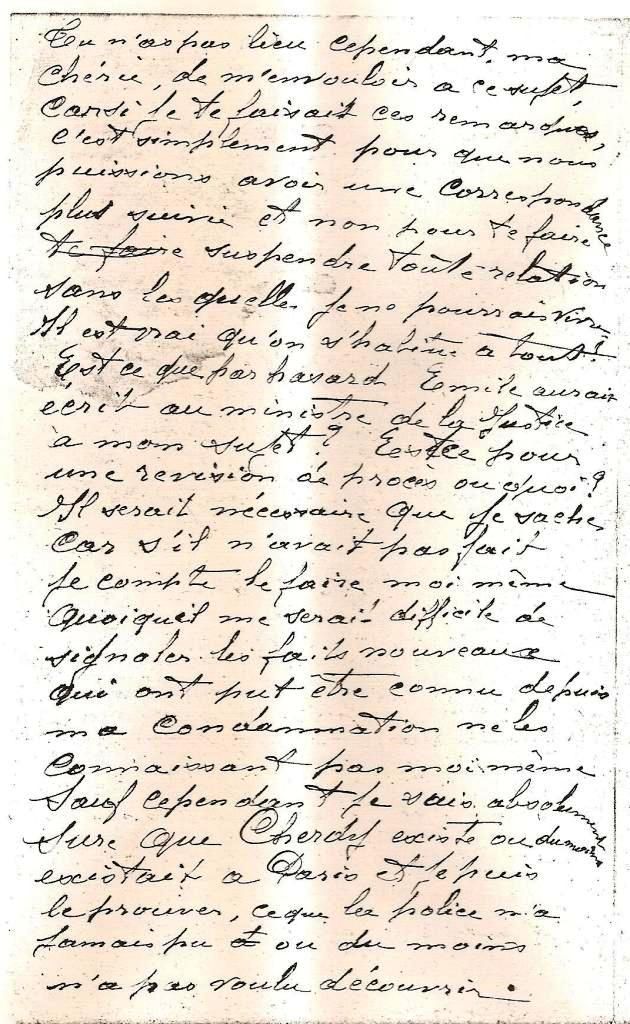 Tu n'as pas lieu cependant, ma
chérie, de m'en vouloir a ce sujet,
Car si je te faisait ces remarques,
C'est simplement pour que nous
puissions avoir une Correspondance
plus suivie et non pour te faire
te faire suspendre toute relation
sans les quelles je ne pourrais vivre.
Il est vrai qu'on s'habitue a tout!
Est ce que par hasard Emile aurait
écrit au ministre de la Justice
à mon sujet? Est ce pour
une revision de procès ou quoi?
Il serait nécessaire que je sache
Car s'il n'avait pas fait
je compte le faire moi même
Quoiqueil me serait difficile de
signaler les faits nouveaux
qui ont put être connu depuis
ma Condamnation ne les
Connaissant pas moi même
Sauf cependant je suis absolument
Sure que Cherdy existe ou du moins
existait a Paris et je puis
le prouver, ce que la police n'a
jamais pu et ou du moins
n'a pas voulu découvrir.